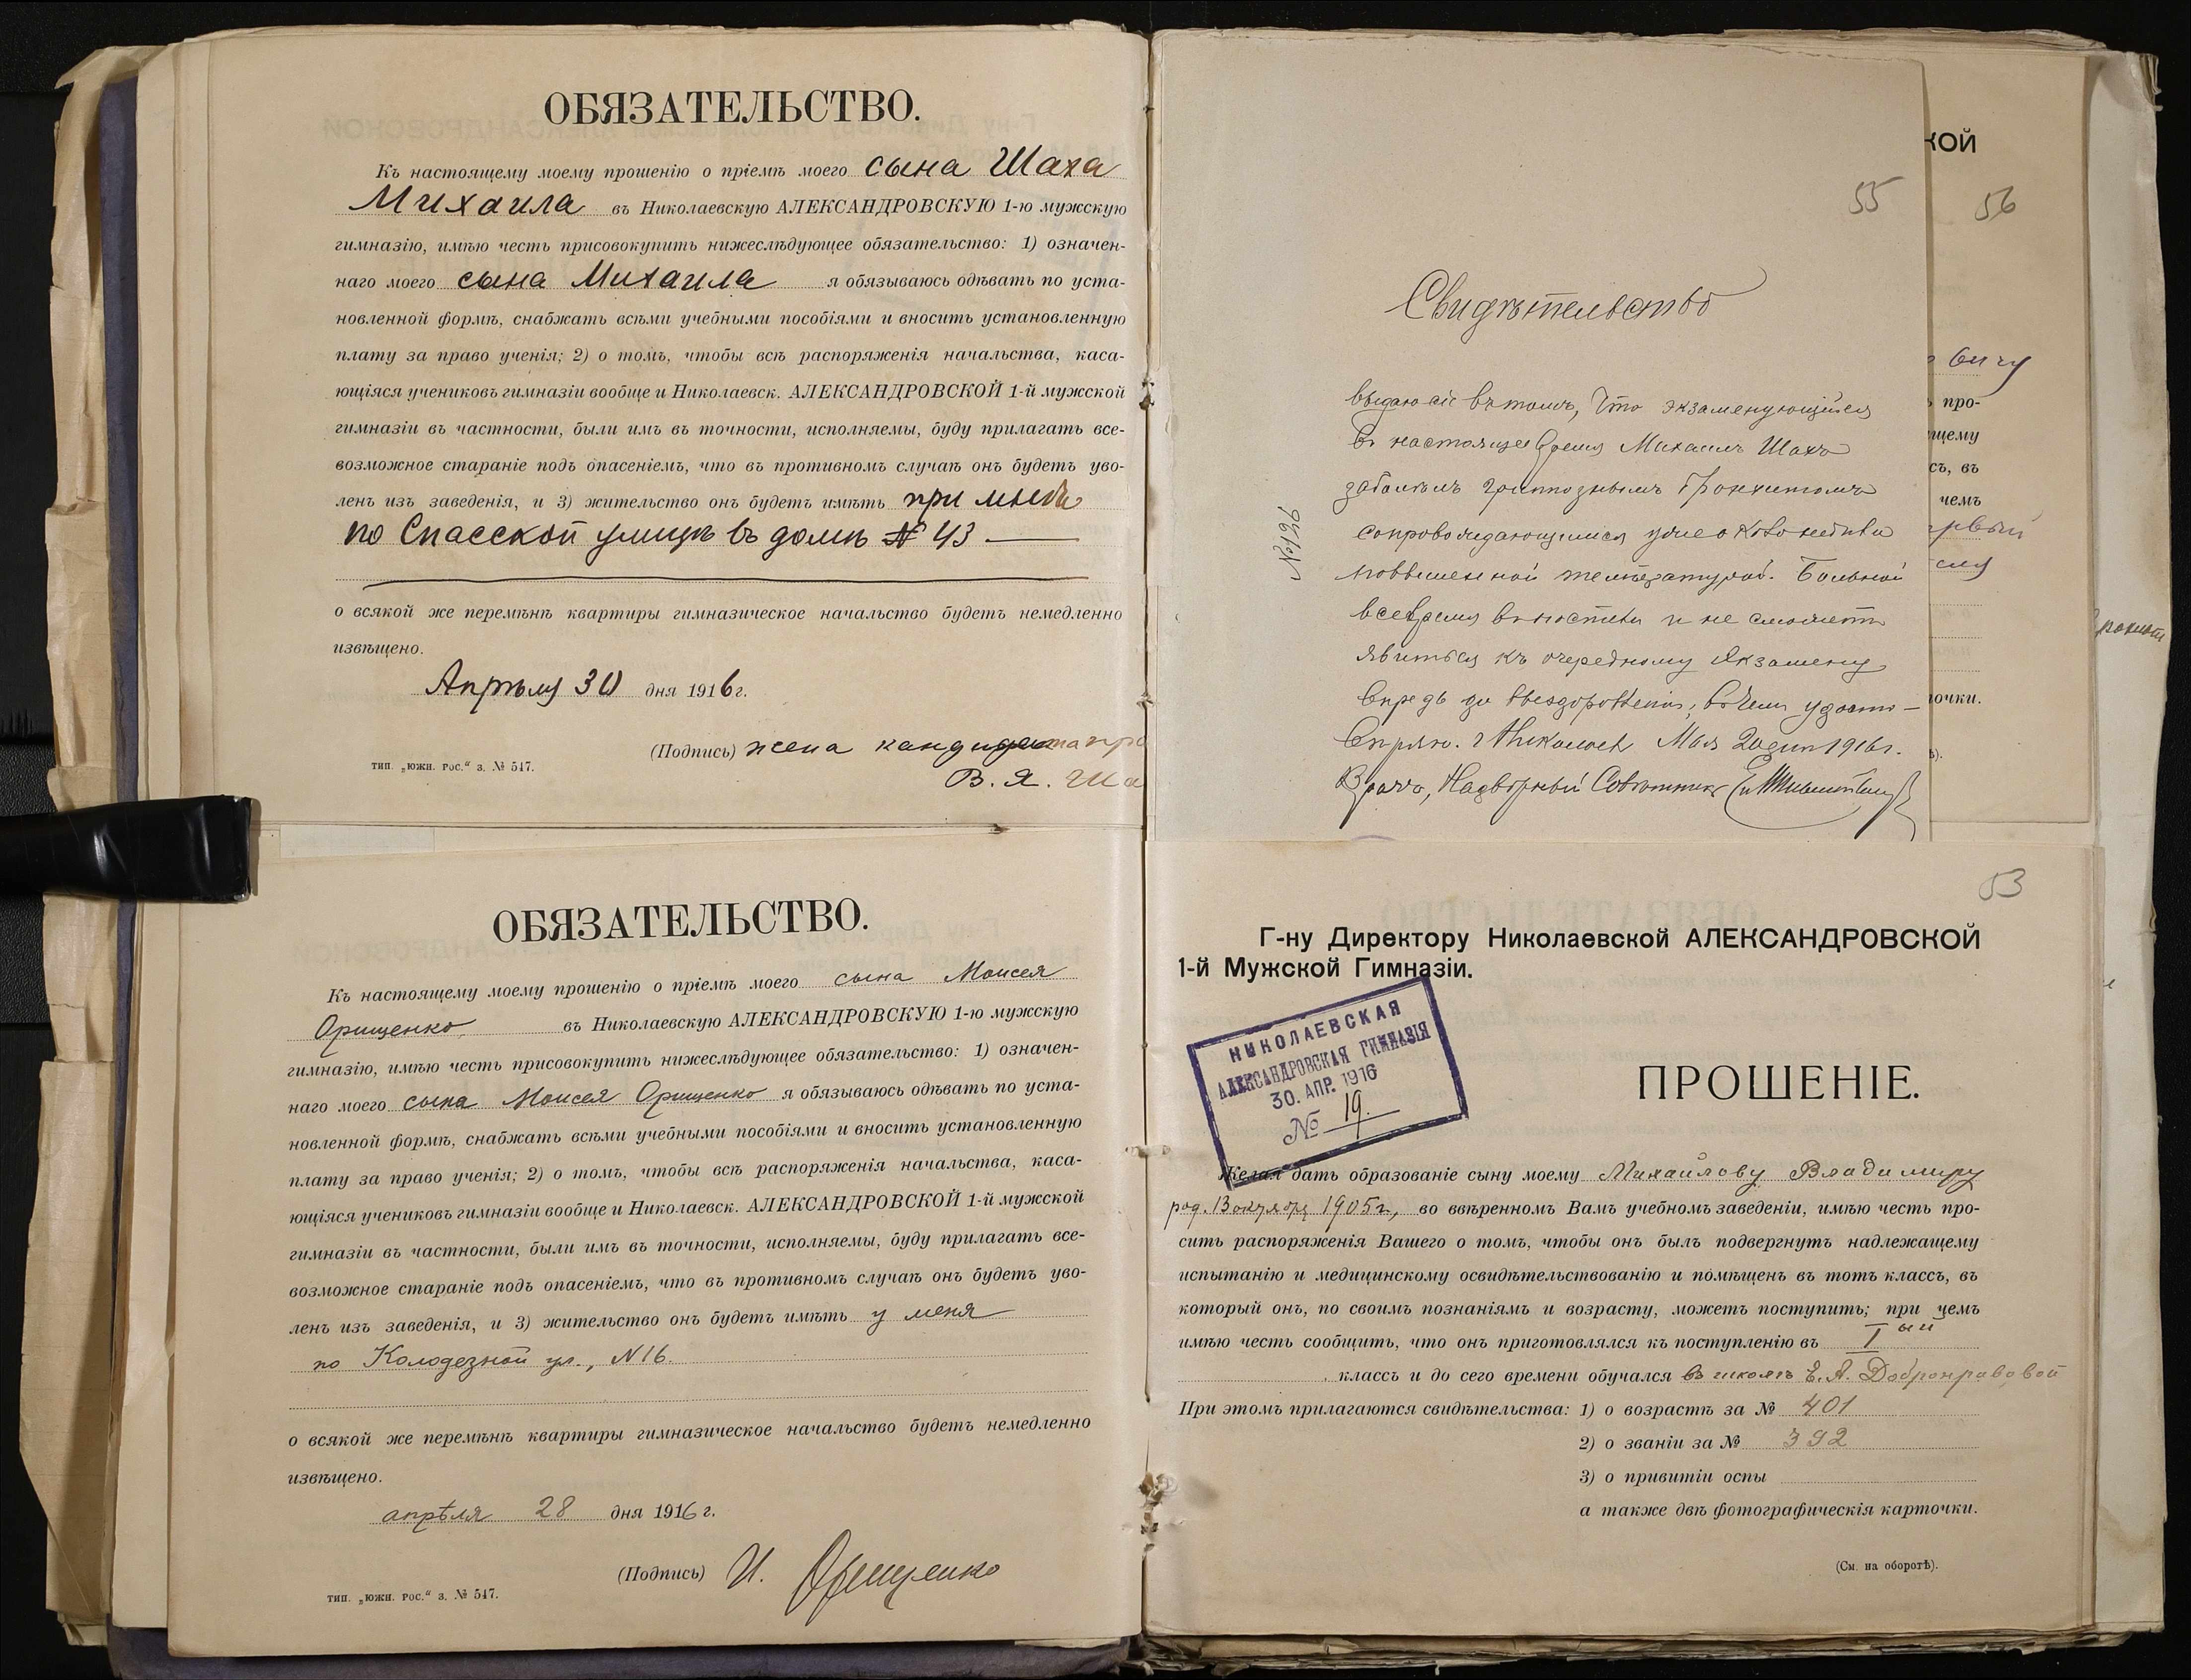 ОБЯЗАТЕЛЬСТВО.
Къ настоящему моему прошенію о пріемѣ моего сына Шаха
Михаила въ Николаевскую АЛЕКСАНДРОВСКУЮ 1-ю мужскую
гимназію, имѣю честь присовокупить нижеслѣдующее обязательство: 1) означен-
наго моего сына Михаила я обязываюсь одѣвать по уста-
новленной формѣ, снабжать всѣми учебными пособіями и вносить установленную
плату за право ученія; 2) о томъ, чтобы всѣ распоряженія начальства, каса-
ющіяся учениковъ гимназіи вообще и Николаевск. АЛЕКСАНДРОВСКОЙ 1-й мужской
гимназіи въ частности, были имъ въ точности, исполняемы, буду прилагать все-
возможное стараніе подъ опасеніемъ, что въ противномъ случаѣ онъ будетъ уво-
ленъ изъ заведенія, и 3) жительство онъ будетъ имѣть при мнѣ
по Спасской улицѣ въ домѣ № 43
о всякой же перемѣнѣ квартиры гимназическое начальство будетъ немедленно
извѣщено.
Апрѣля 30 дня 1916 г.
(Подпись) жена кандидата пра
В. Я. Ша
тип. „южн. рос.“ з. № 547.
55
Свидѣтельство
выдаю сіе въ томъ, что экзаменующійся
въ настоящее время Михаилъ Шахъ
заболѣлъ гриппознымъ бронхитомъ
сопровождающимся
повышенной температурой. Больной
все время въ постели и не сможетъ
явиться къ очередному экзамену
впредь до выздоровленія, въ чемъ удосто-
вѣряю. г. Николаевъ Мая 2 дня 1916 г.
Врачъ, Надворный Совѣтникъ
№ 196
КОЙ
56
вичу
про-
щему
сь, въ
чемъ
рвый
очки.
ОБЯЗАТЕЛЬСТВО.
Къ настоящему моему прошенію о пріемѣ моего сына Моисея
Орищенко въ Николаевскую АЛЕКСАНДРОВСКУЮ 1-ю мужскую
гимназію, имѣю честь присовокупить нижеслѣдующее обязательство: 1) означен-
наго моего сына Моисея Орищенко я обязываюсь одѣвать по уста-
новленной формѣ, снабжать всѣми учебными пособіями и вносить установленную
плату за право ученія; 2) о томъ, чтобы всѣ распоряженія начальства, каса-
ющіяся учениковъ гимназіи вообще и Николаевск. АЛЕКСАНДРОВСКОЙ 1-й мужской
гимназіи въ частности, были имъ въ точности, исполняемы, буду прилагать все-
возможное стараніе подъ опасеніемъ, что въ противномъ случаѣ онъ будетъ уво-
ленъ изъ заведенія, и 3) жительство онъ будетъ имѣть у меня
по Колодезной ул., N 16.
о всякой же перемѣнѣ квартиры гимназическое начальство будетъ немедленно
извѣщено.
апрѣля 28 дня 1916 г.
(Подпись) И. Орищенко
тип. „южн. рос.“ з. № 547.
53
Г-ну Директору Николаевской АЛЕКСАНДРОВСКОЙ
1-й Мужской Гимназіи.
НИКОЛАЕВСКАЯ
АЛЕКСАНДРОВСКАЯ ГИМНАЗІЯ
30. АПР. 1916
№ 19.
ПРОШЕНІЕ.
Желая дать образованіе сыну моему Михайлову Владимиру
род. 13 октября 1905 г., во ввѣренномъ Вамъ учебномъ заведеніи, имѣю честь про-
сить распоряженія Вашего о томъ, чтобы онъ былъ подвергнутъ надлежащему
испытанію и медицинскому освидѣтельствованію и помѣщенъ въ тотъ классъ, въ
который онъ, по своимъ познаніямъ и возрасту, можетъ поступить; при чемъ
имѣю честь сообщить, что онъ приготовлялся къ поступленію въ I ый
классъ и до сего времени обучался въ школѣ Е. А. Добронравовой
При этомъ прилагаются свидѣтельства: 1) о возрастѣ за № 401
2) о званіи за № 392
3) о привитіи оспы
а также двѣ фотографическія карточки.
(См. на оборотѣ).